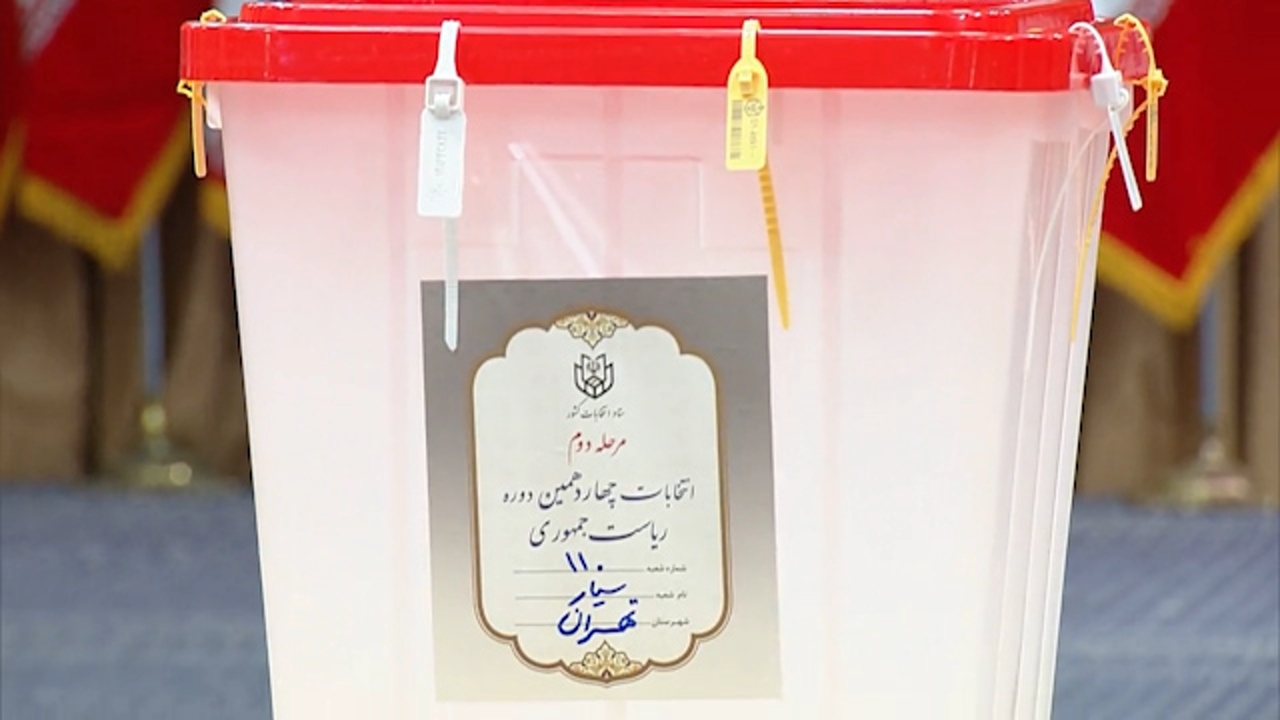 ستاد انتخابات کشور
مرحله دوم
انتخابات چهاردهمین دوره
ریاست جمهوری
شماره شعبه ۱۱۰
نام شعبه سیار
شهرستان تهران